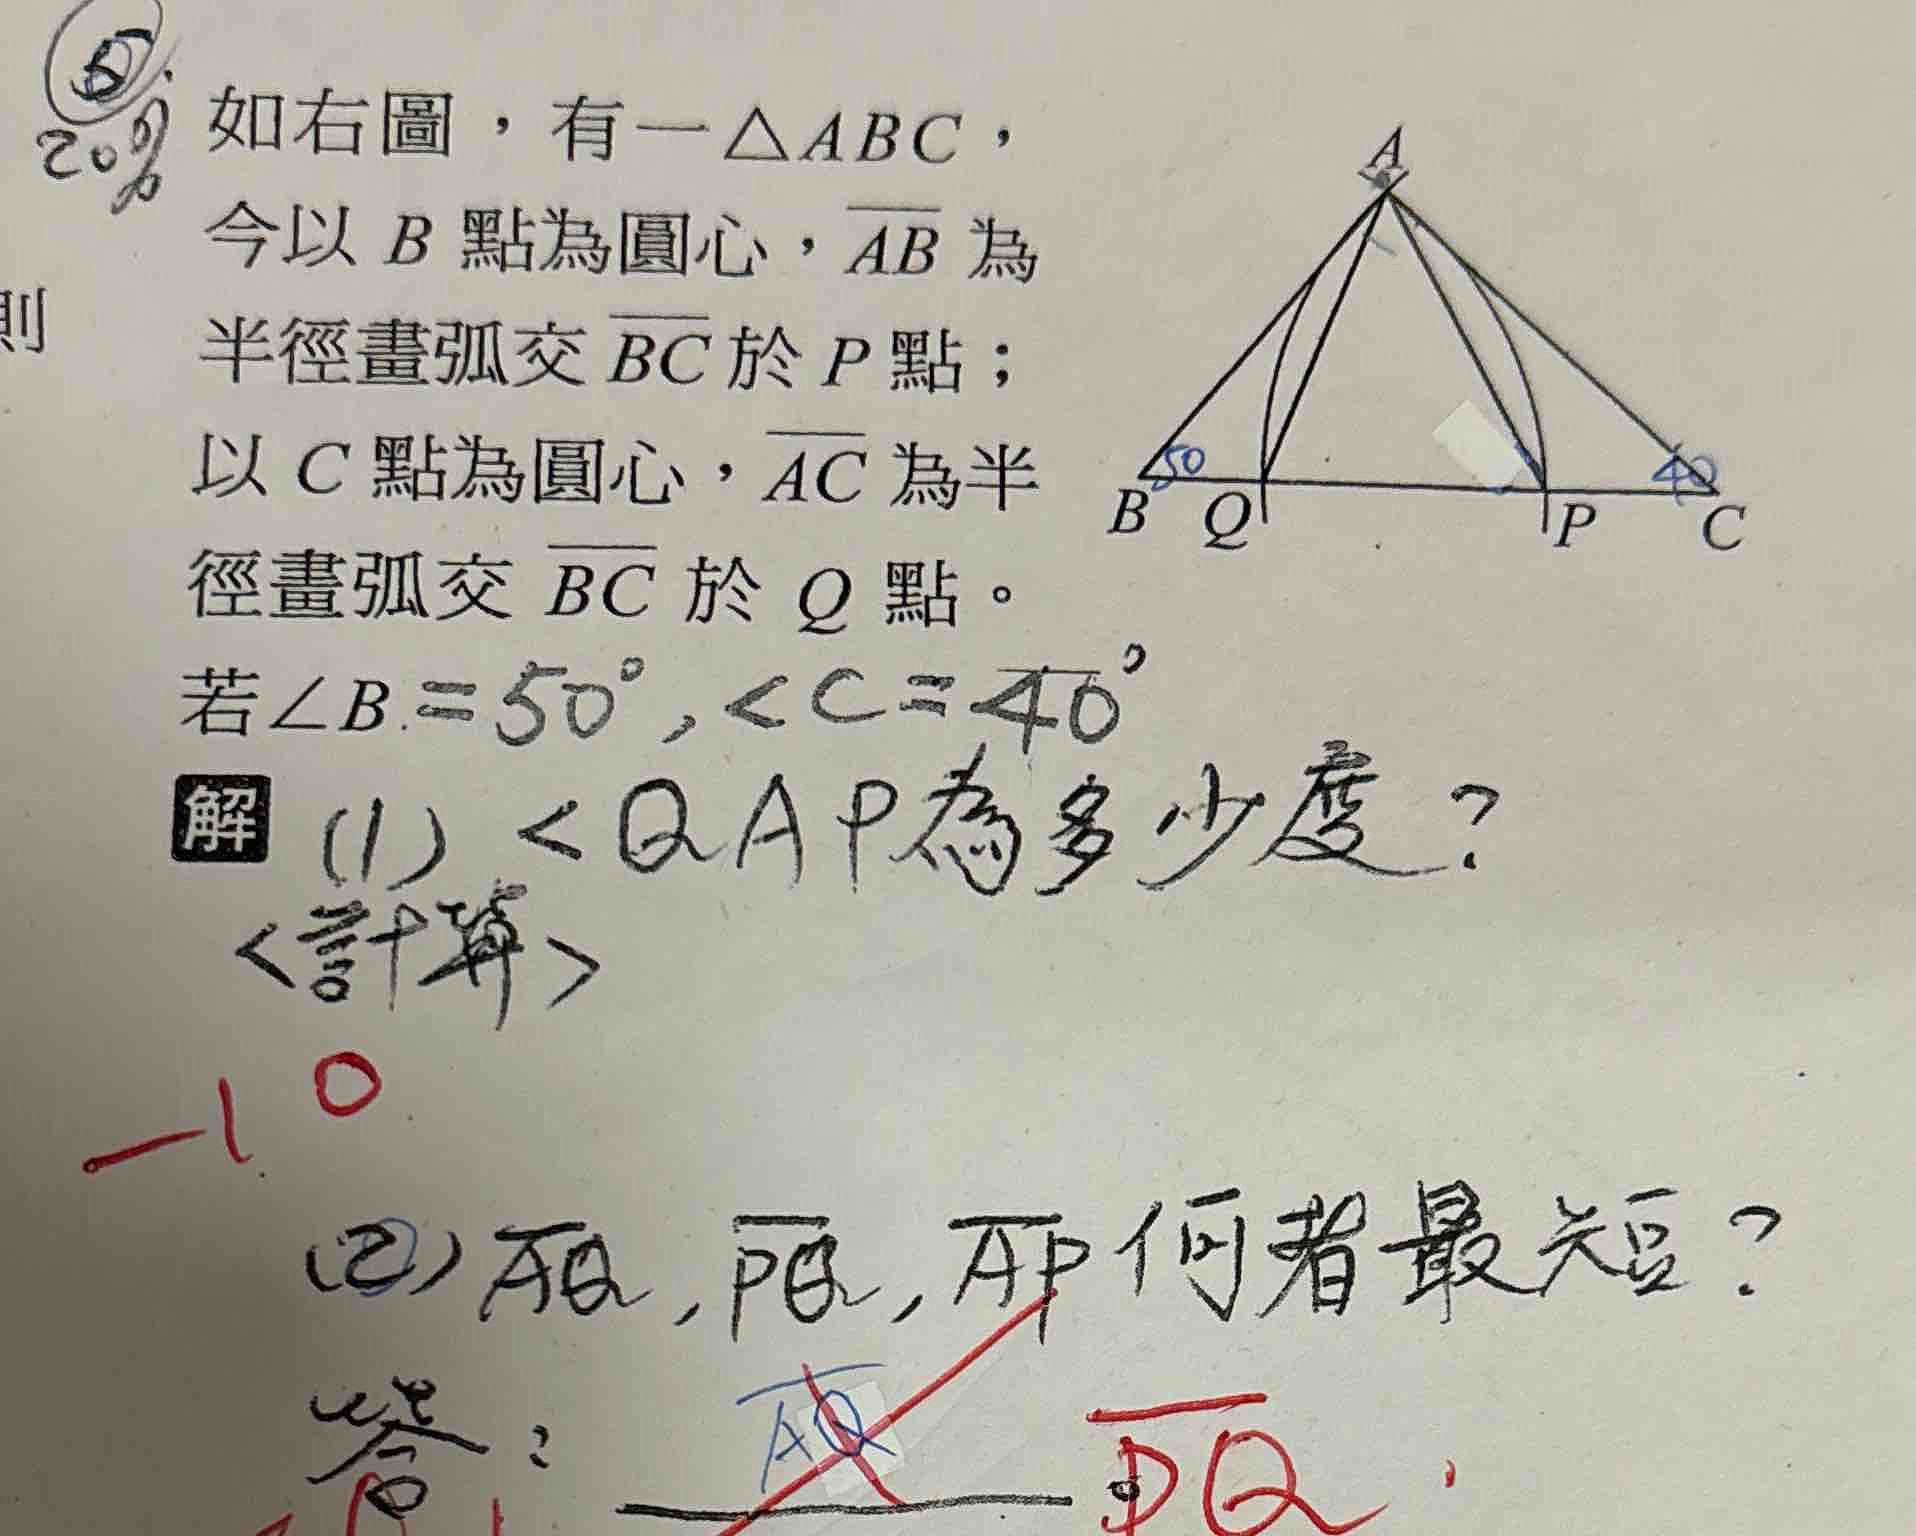 5.
20%
如右圖,有一△ABC,
今以 B 點為圓心,AB 為
半徑畫弧交 BC 於 P 點;
以 C 點為圓心,AC 為半
徑畫弧交 BC 於 Q 點。
若∠B.=50°,<C=40°
則
A
50
40
B
Q
P
C
解 (1) <QAP為多少度?
<計算>
-10
(2) AQ, PQ, AP 何者最短?
答: AQ PQ.